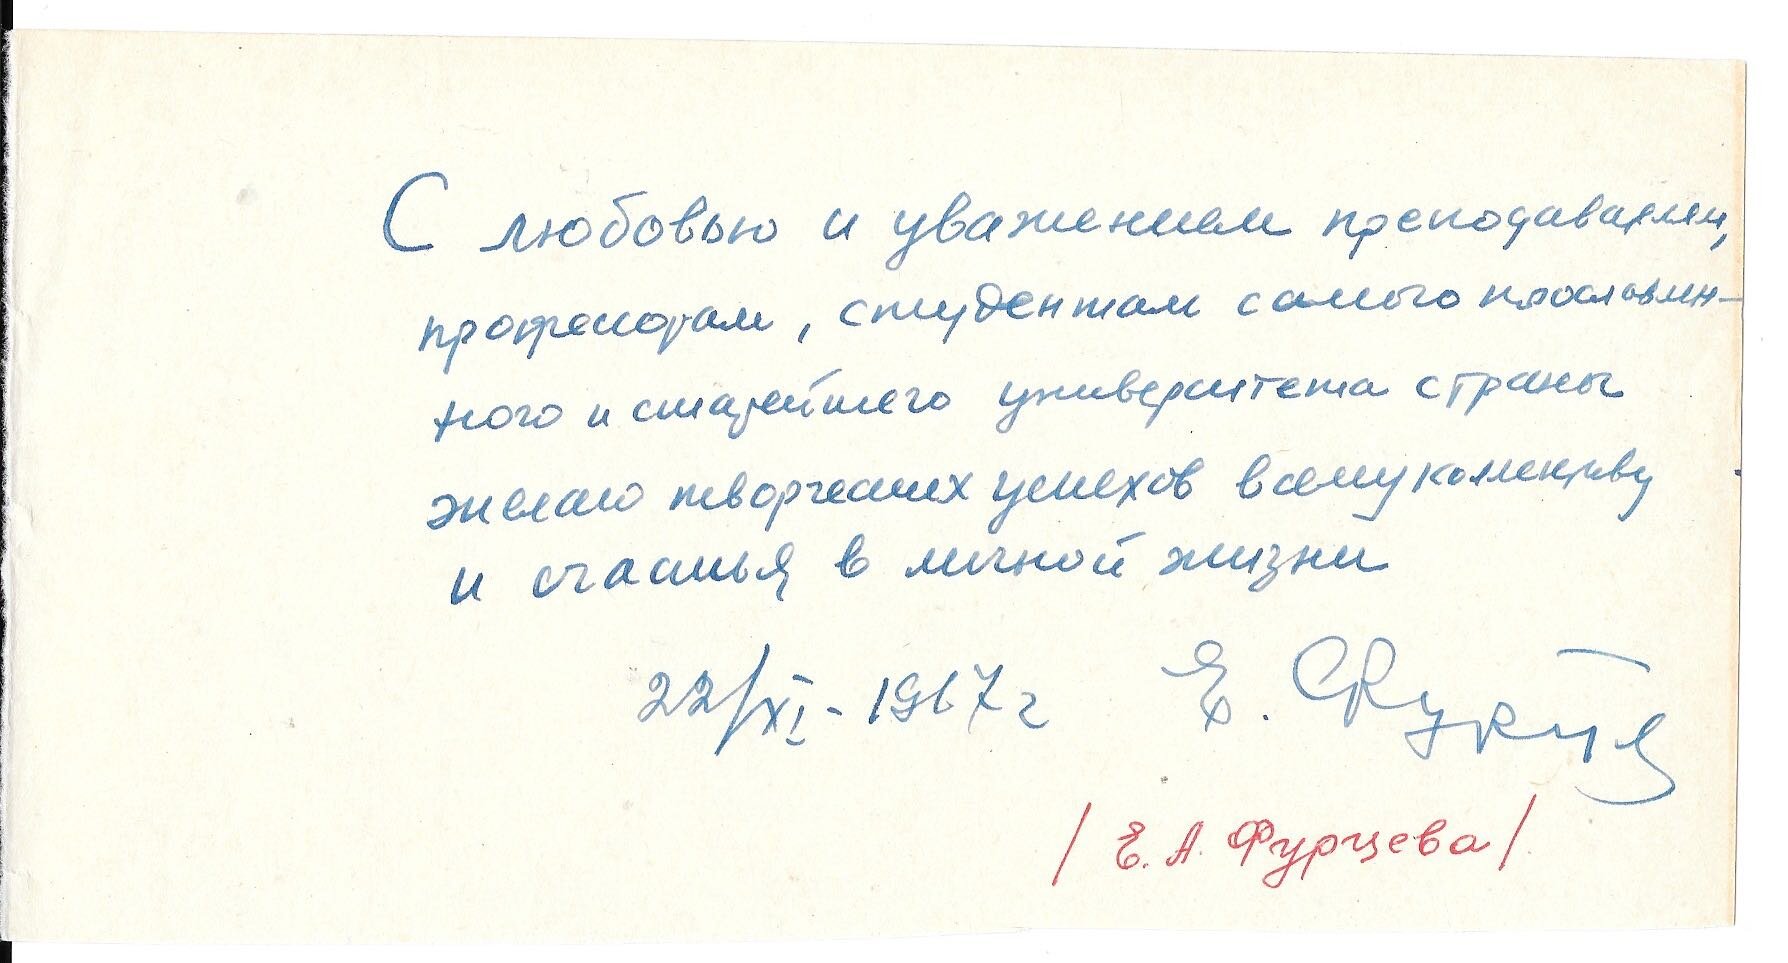 С любовью и уважением преподавателям,
профессорам, студентам самого прославлен-
ного и старейшего университета страны
желаю творческих успехов всему коллективу
и счастья в личной жизни
22/XI - 1967 г Е. Фурцева
/ Е. А. Фурцева /